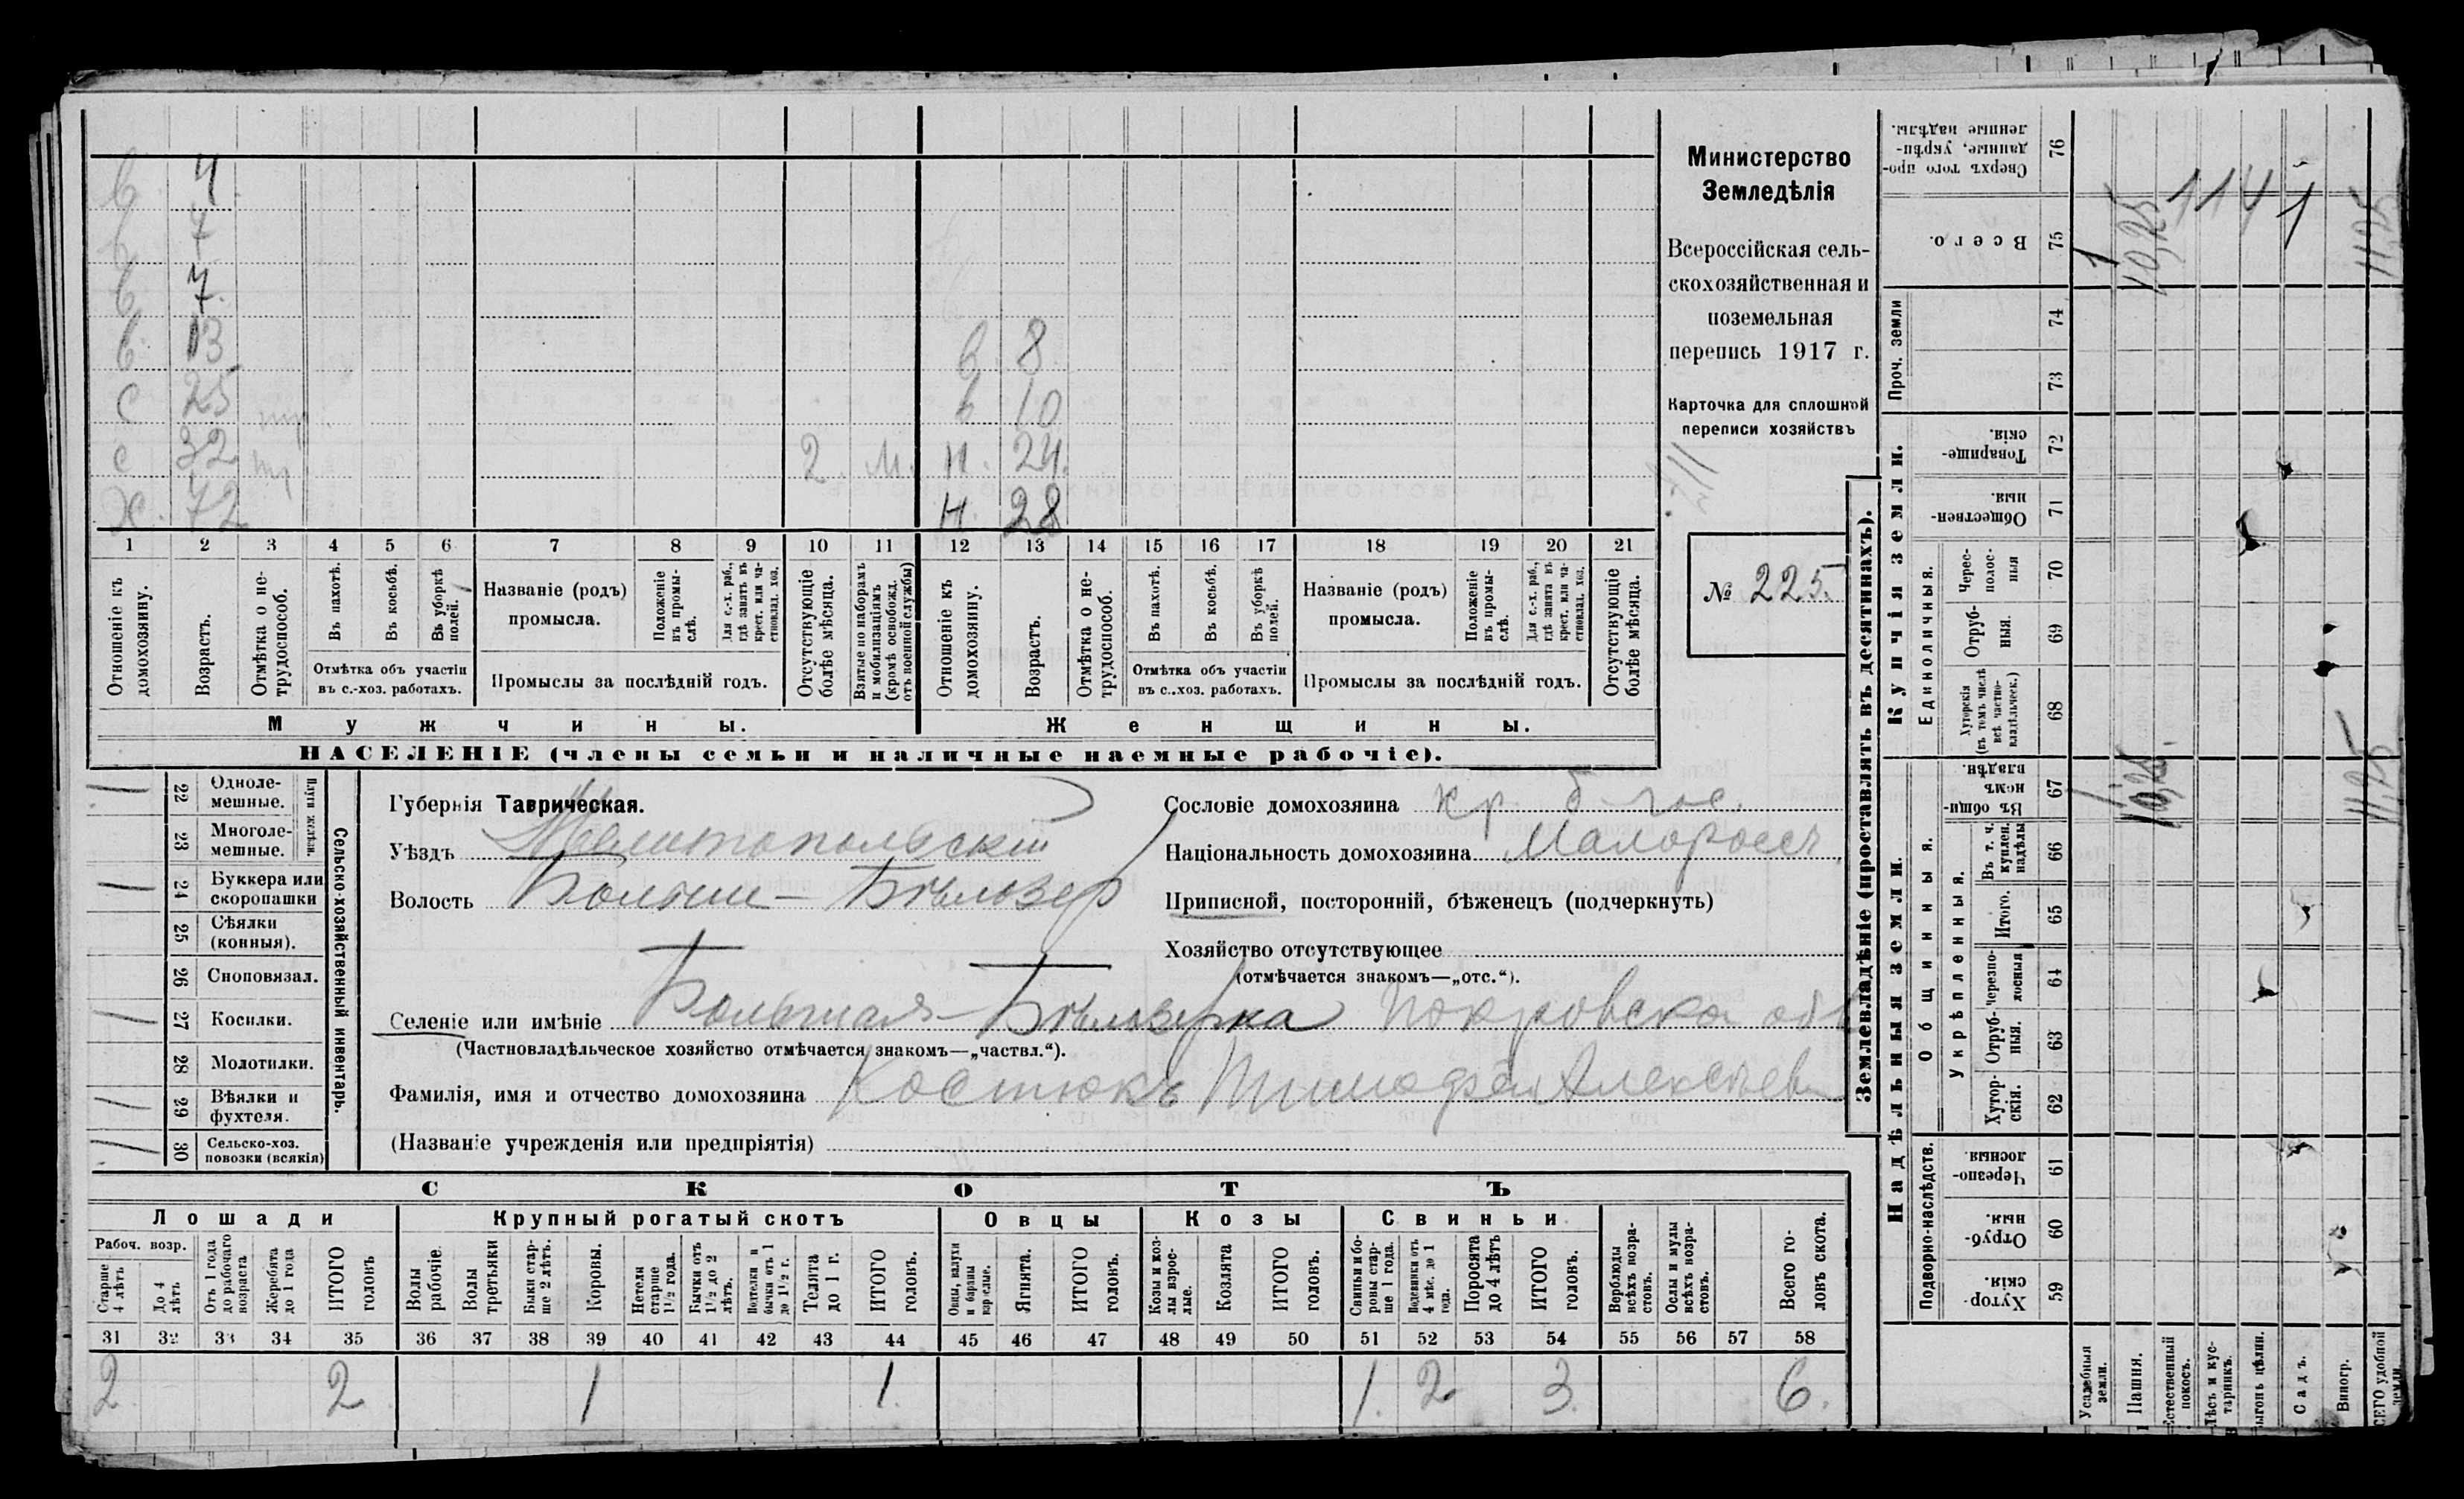 в. 4
в 7
в 7.
в. 13 в. 8
с 25 тр в 10
с 32 тр 2. м. н. 24.
х. 72 н. 28
1 2 3 4 5 6 7 8 9 10 11 12 13 14 15 16 17 18 19 20 21
Отношеніе къ домохозяину.
Возрастъ.
Отмѣтка о нетрудоспособ.
Въ пахотѣ.
Въ косьбѣ.
Въ уборкѣ полей.
Отмѣтка объ участіи въ с.-хоз. работахъ.
Названіе (родъ) промысла.
Положеніе въ промыслѣ.
Для с.-х. раб., гдѣ занятъ въ крест. или частновлад. хоз.
Промыслы за послѣдній годъ.
Отсутствующіе болѣе мѣсяца.
Взятые по наборамъ и мобилизаціямъ (кромѣ освобожд. отъ военной службы)
Отношеніе къ домохозяину.
Возрастъ.
Отмѣтка о нетрудоспособ.
Въ пахотѣ.
Въ косьбѣ.
Въ уборкѣ полей.
Отмѣтка объ участіи въ с..хоз. работахъ.
Названіе (родъ) промысла.
Положеніе въ промыслѣ.
Для с.-х. раб., гдѣ занята въ крест. или частновлад. хоз.
Промыслы за послѣдній годъ.
Отсутствующіе болѣе мѣсяца.
Мужчины. Женщины.
НАСЕЛЕНІЕ (члены семьи и наличные наемные рабочіе).
Министерство
Земледѣлія
Всероссійская сель-
скохозяйственная и
поземельная
перепись 1917 г.
Карточка для сплошной
переписи хозяйствъ
№ 225.
/ 22 Однолемешные.
23 Многолемешные.
Плуги желѣзн.
/ 24 Буккера или скоропашки
25 Сѣялки (конныя).
26 Сноповязал.
/ 27 Косилки.
28 Молотилки.
/ 29 Вѣялки и фухтеля.
/ 30 Сельско-хоз. повозки (всякія)
Сельско-хозяйственный инвентарь.
Губернія Таврическая.
Уѣздъ Мелитопольскій
Волость Больше-Бѣлозер
Селеніе или имѣніе Большая-Бѣлозерка Покровска об
(Частновладѣльческое хозяйство отмѣчается знакомъ—„частвл.“).
Фамилія, имя и отчество домохозяина Костюкъ Тимофей Алексѣев
(Названіе учрежденія или предпріятія)
Сословіе домохозяина кр. б-гос.
Національность домохозяина Малороссъ
Приписной, посторонній, бѣженецъ (подчеркнуть)
Хозяйство отсутствующее
(отмѣчается знакомъ—„отс.“).
СКОТЪ
Лошади Крупный рогатый скотъ Овцы Козы Свиньи
Рабоч. возр.
Старше 4 лѣтъ
До 4 лѣтъ
Отъ 1 года до рабочаго возраста
Жеребята до 1 года
ИТОГО головъ
Волы рабочіе.
Волы третьяки
Быки старше 2 лѣтъ.
Коровы.
Нетели старше 1½ года.
Бычки отъ 1½ до 2 лѣтъ.
Нетелки и бычки отъ 1 до 1½ г.
Телята до 1 г.
ИТОГО головъ.
Овцы, валухи и бараны взрослые.
Ягнята.
ИТОГО головъ.
Козы и козлы взрослые.
Козлята
ИТОГО головъ.
Свиньи и боровы старше 1 года.
Подсвинки отъ 4 мѣс. до 1 года.
Поросята до 4 лѣтъ
ИТОГО головъ.
Верблюды всѣхъ возрастовъ.
Ослы и мулы всѣхъ возрастовъ.
Всего головъ скота.
31 32 33 34 35 36 37 38 39 40 41 42 43 44 45 46 47 48 49 50 51 52 53 54 55 56 57 58
2 2 1 1. 1. 2 3. 6.
Землевладѣніе (проставлять въ десятинахъ).
Купчія земли.
Надѣльныя земли.
Сверхъ того проданные, укрѣпленные надѣлы. 76
Всего. 75 1 10,25 11,25
Проч. земли 74 73
Товарищескія. 72
Общественныя. 71
Единоличныя.
Чересполосныя 70
Отрубныя. 69
Хуторскія (въ томъ числѣ всѣ частновладѣльческ.) 68
Общинныя.
Въ общинномъ владѣн. 67 1. 10,25. 11,25
Укрѣпленныя.
Въ т. ч. куплен. надѣлы 66
Итого. 65
Черезполосныя 64
Отрубныя. 63
Хуторскія. 62
Подворно-наслѣдств.
Черезполосныя. 61
Отрубныя. 60
Хуторскія. 59
Усадебныя земли.
Пашня.
Естественный покосъ.
Лѣсъ и кустарникъ.
Выгонъ цѣлин.
Садъ.
Виногр.
ВСЕГО удобной земли